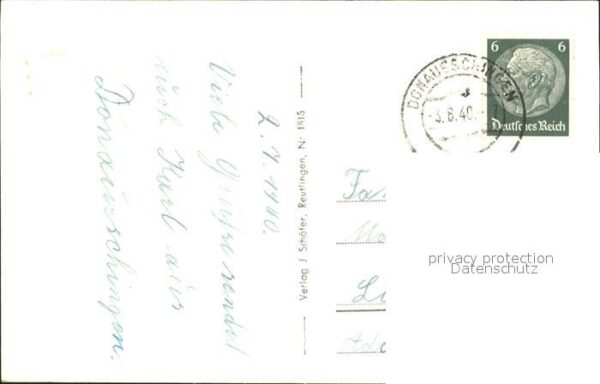 2. 7. 1940.
Viele Grüße sendet
euch Karl aus
Donaueschingen.
Verlag J. Schäfer, Reutlingen, Nr. 1815
DONAUESCHINGEN
-3.8.40.
6 6
Deutsches Reich
Fa
privacy protection
Datenschutz